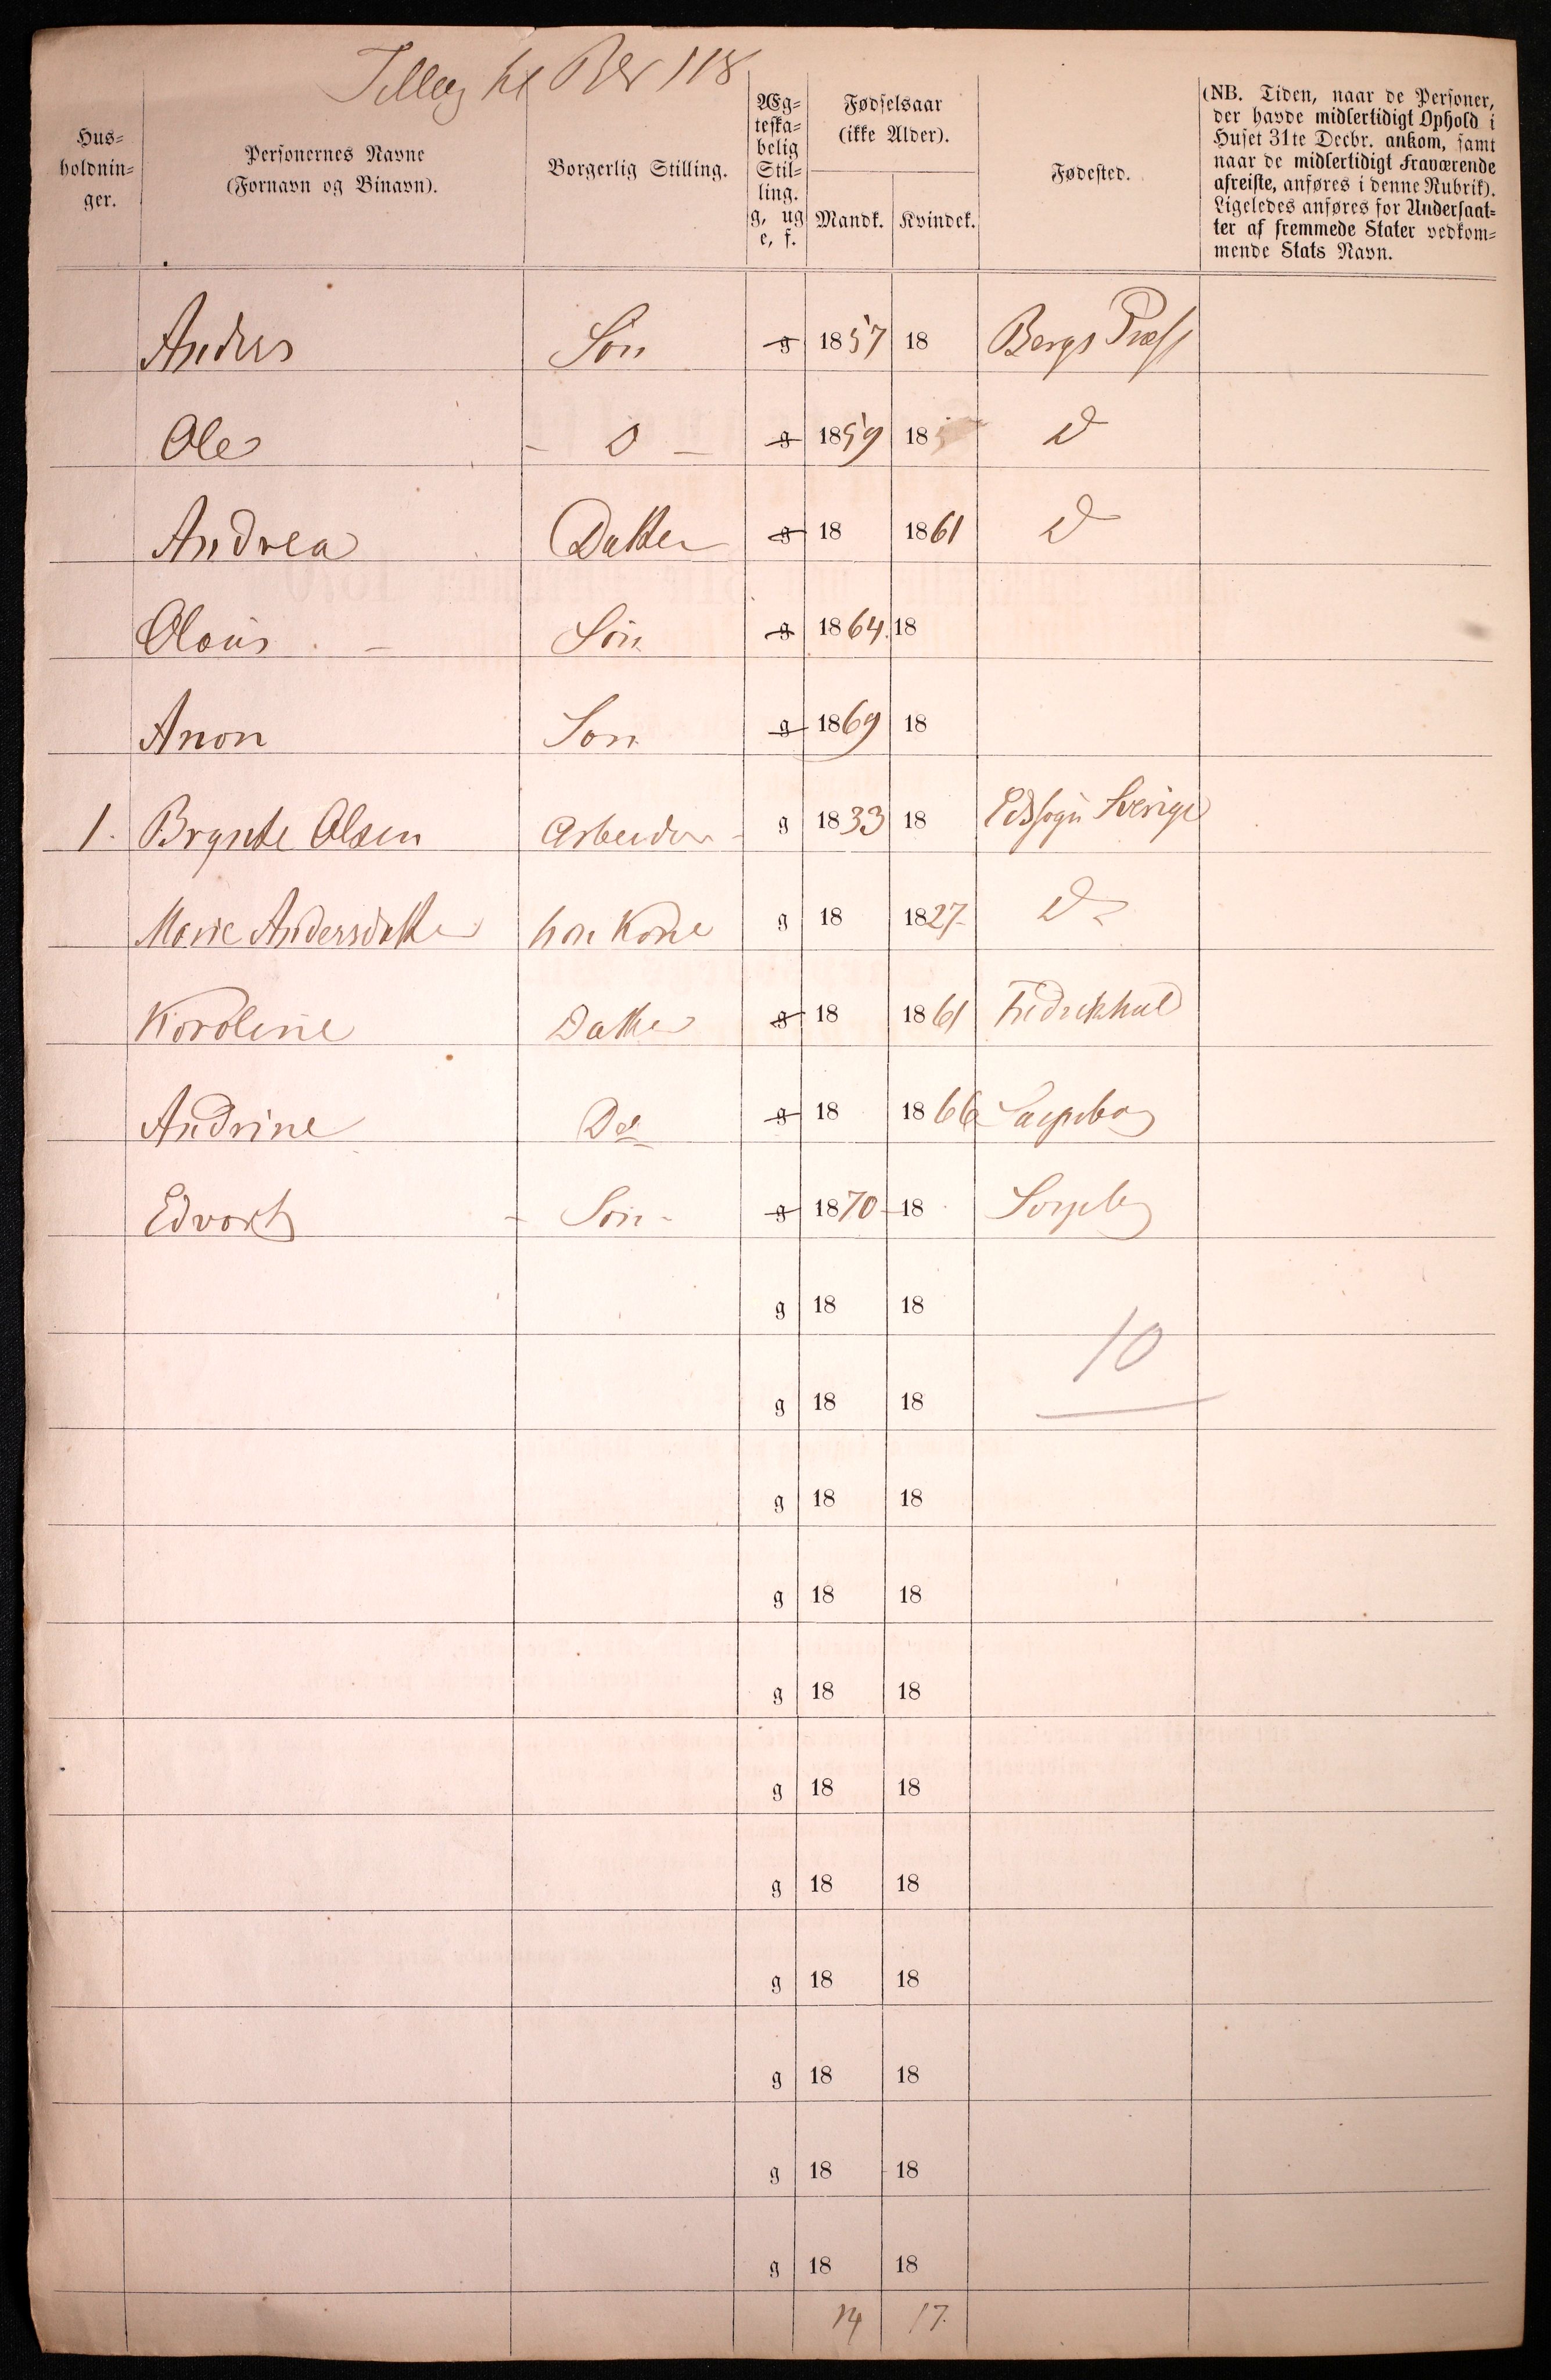 Tillæg til No 118
Hus-
holdnin-
ger.
Personernes Navne
(Fornavn og Binavn).
Borgerlig Stilling.
Æg-
teska-
belig
Stil-
ling.
g, ug
e, f.
Fødselsaar
(ikke Alder).
Mandk. Kvindek.
Fødested.
(NB. Tiden, naar de Personer,
der havde midlertidigt Ophold i
Huset 31te Decbr. ankom, samt
naar de midlertidigt Fraværende
afreiste, anføres i denne Rubrik).
Ligeledes anføres for Undersaat-
ter af fremmede Stater vedkom-
mende Stats Navn.
Anders Søn g 1857 18 Bergs Præst
Ole - D - g 1859 18 D
Andrea Datter g 18 1861 D
Olaus - Søn g 1864 18
Anon Søn g 1869 18
1. Brynte Olsen Arbeider g 1833 18 Edssogn Sverige
Marie Andersdatter hans Kone g 18 1827 D
Karoline Datter g 18 1861 Fredrikhald
Andrine Do g 18 1866 Sarpsborg
Edvart - Søn - g 1870 18 Sarpsborg
g 18 18
10
g 18 18
g 18 18
g 18 18
g 18 18
g 18 18
g 18 18
g 18 18
g 18 18
g 18 18
g 18 18
14 17.